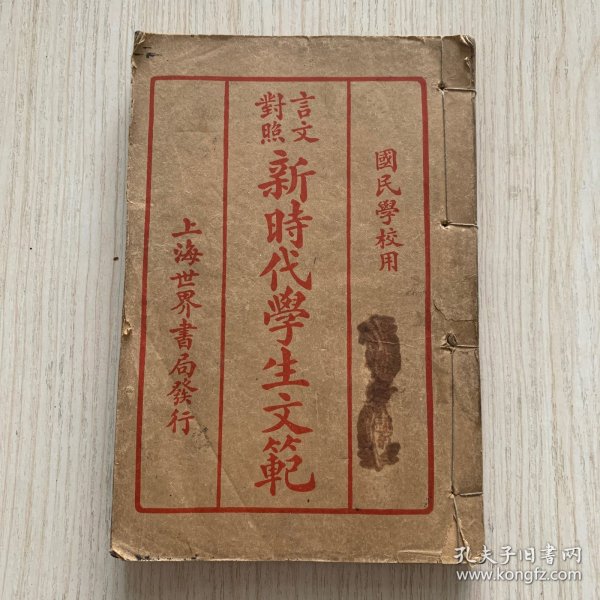 國民學校用
言文
對照
新時代學生文範
上海世界書局發行
孔夫子旧书网
www.kongfz.com